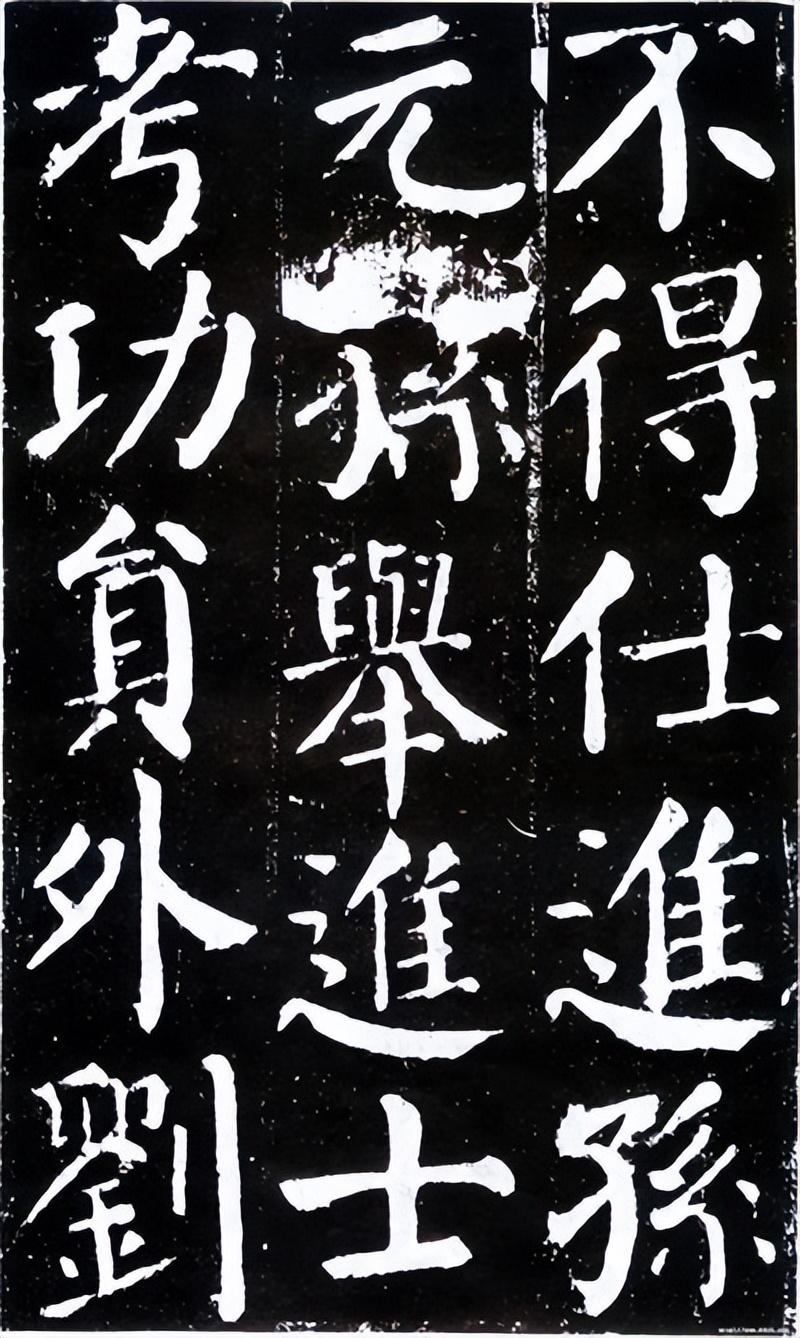 不得仕進孫
元孫舉進士
考功貟外劉